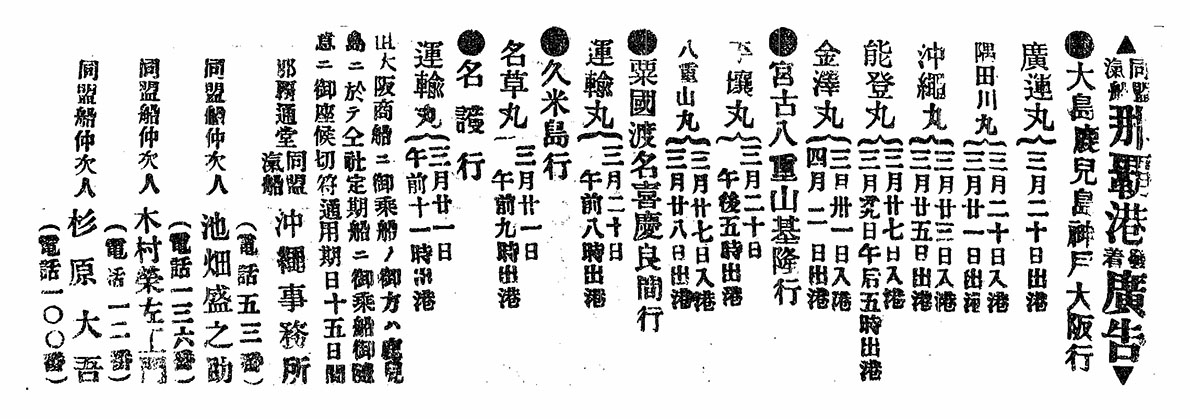 ▲同盟汽船那覇港發着廣告▼
●大島鹿兒島神戸大阪行
廣運丸{三月二十日出港
隅田川丸{三月二十日入港
三月廿一日出港
沖繩丸{三月廿三日入港
三月廿五日出港
能登丸{三月廿七日入港
三月　日午后五時出港
金澤丸{三月卅一日入港
四月二日出港
●宮古八重山基隆行
丸{三月二十日
午後五時出港
八重山丸{三月廿七日入港
三月廿八日出港
●粟國渡名喜慶良間行
運輸丸{三月二十日
午前八時出港
●久米島行
名草丸{三月廿一日
午前九時出港
●名護行
運輸丸{三月廿一日
午前十一時出港
大阪商船ニ御乘船ノ御方ハ鹿兒
島ニ於テ仝社定期船ニ御乘船御隨
意ニ御座候切符通用期日十五日間
那覇通堂 同盟汽船 沖繩事務所
(電話五三番)
同盟船仲次人 池畑盛之助
(電話一三六番)
同盟船仲次人 木村榮左エ門
(電話一二番)
同盟船仲次人 杉原大吾
(電話一〇〇番)